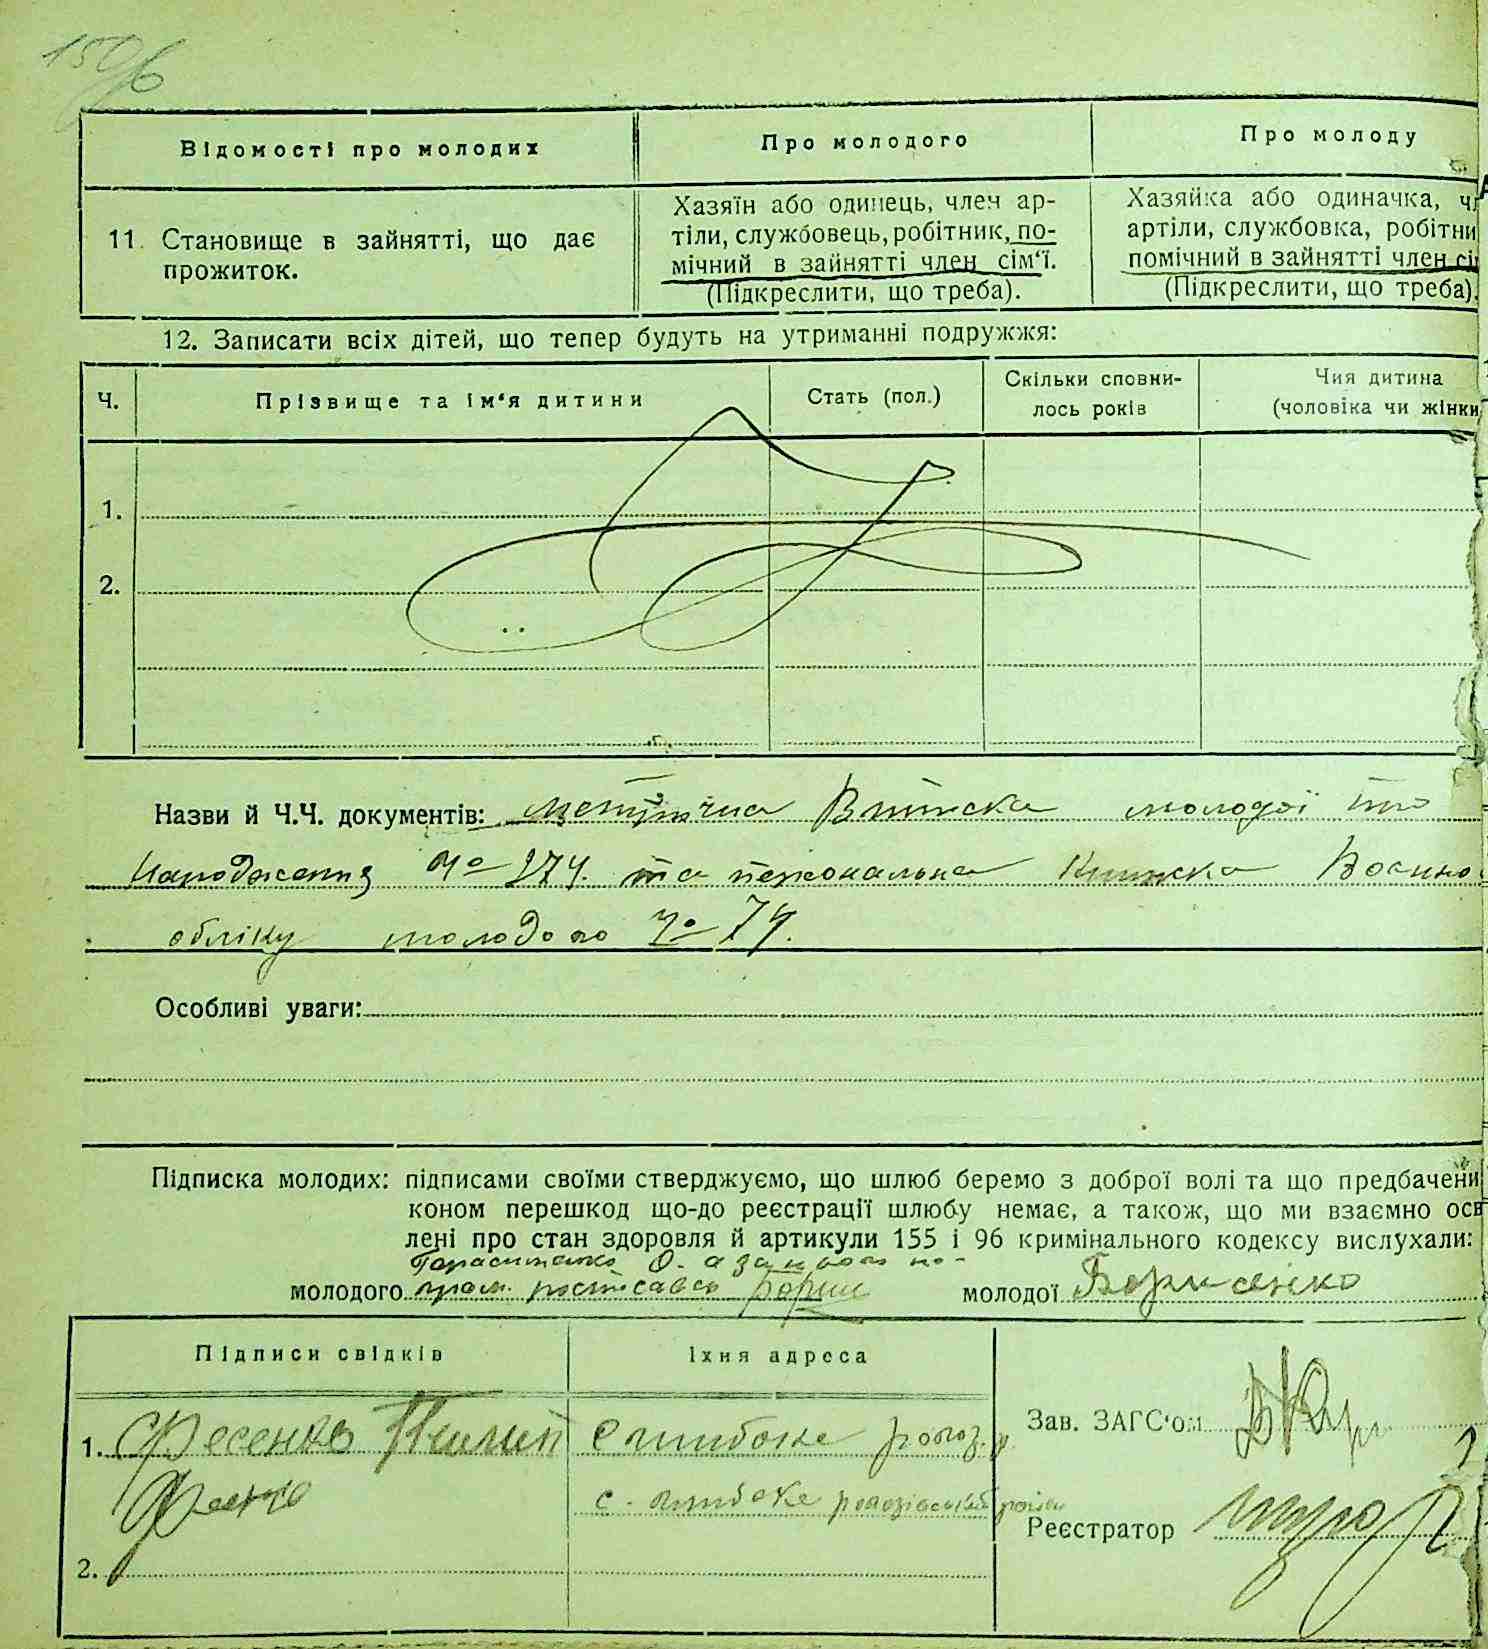 150/6
Відомості про молодих
Про молодого
Про молоду
11. Становище в зайнятті, що дає прожиток.
Хазяїн або одинець, член ар-
тіли, службовець, робітник, по-
мічний в зайнятті член сім'ї.
(Підкреслити, що треба).
Хазяйка або одиначка, чл
артіли, службовка, робітни
помічний в зайнятті член сі
(Підкреслити, що треба).
12. Записати всіх дітей, що тепер будуть на утриманні подружжя:
Ч.
Прізвище та ім'я дитини
Стать (пол.)
Скільки сповни-
лось років
Чия дитина
(чоловіка чи жінки
1.
2.
Назви й Ч.Ч. документів: метрична Виписка молодої про
Народження № 274. та персональна Книжка Военно
обліку молодого № 74.
Особливі уваги:
Підписка молодих: підписами своїми стверджуємо, що шлюб беремо з доброї волі та що предбачени
коном перешкод що-до реєстрації шлюбу немає, а також, що ми взаємно осв
лені про стан здоровля й артикули 155 і 96 кримінального кодексу вислухали:
молодого росписався
молодої Борисенко
Підписи свідків
Їхня адреса
1. Фесенко
с глибоке
с. глибоке
2.
Зав. ЗАГС'ом
Реєстратор